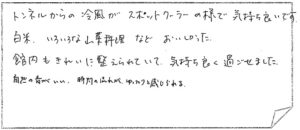 トンネルからの冷風がスポットクーラーの様で気持ち良いです。
白米、いろいろな山菜料理などおいしかった。
館内もきれいに整えられていて、気持ち良く過ごせました。
自然の音がいい、時間の流れが、ゆったりと感じられる。